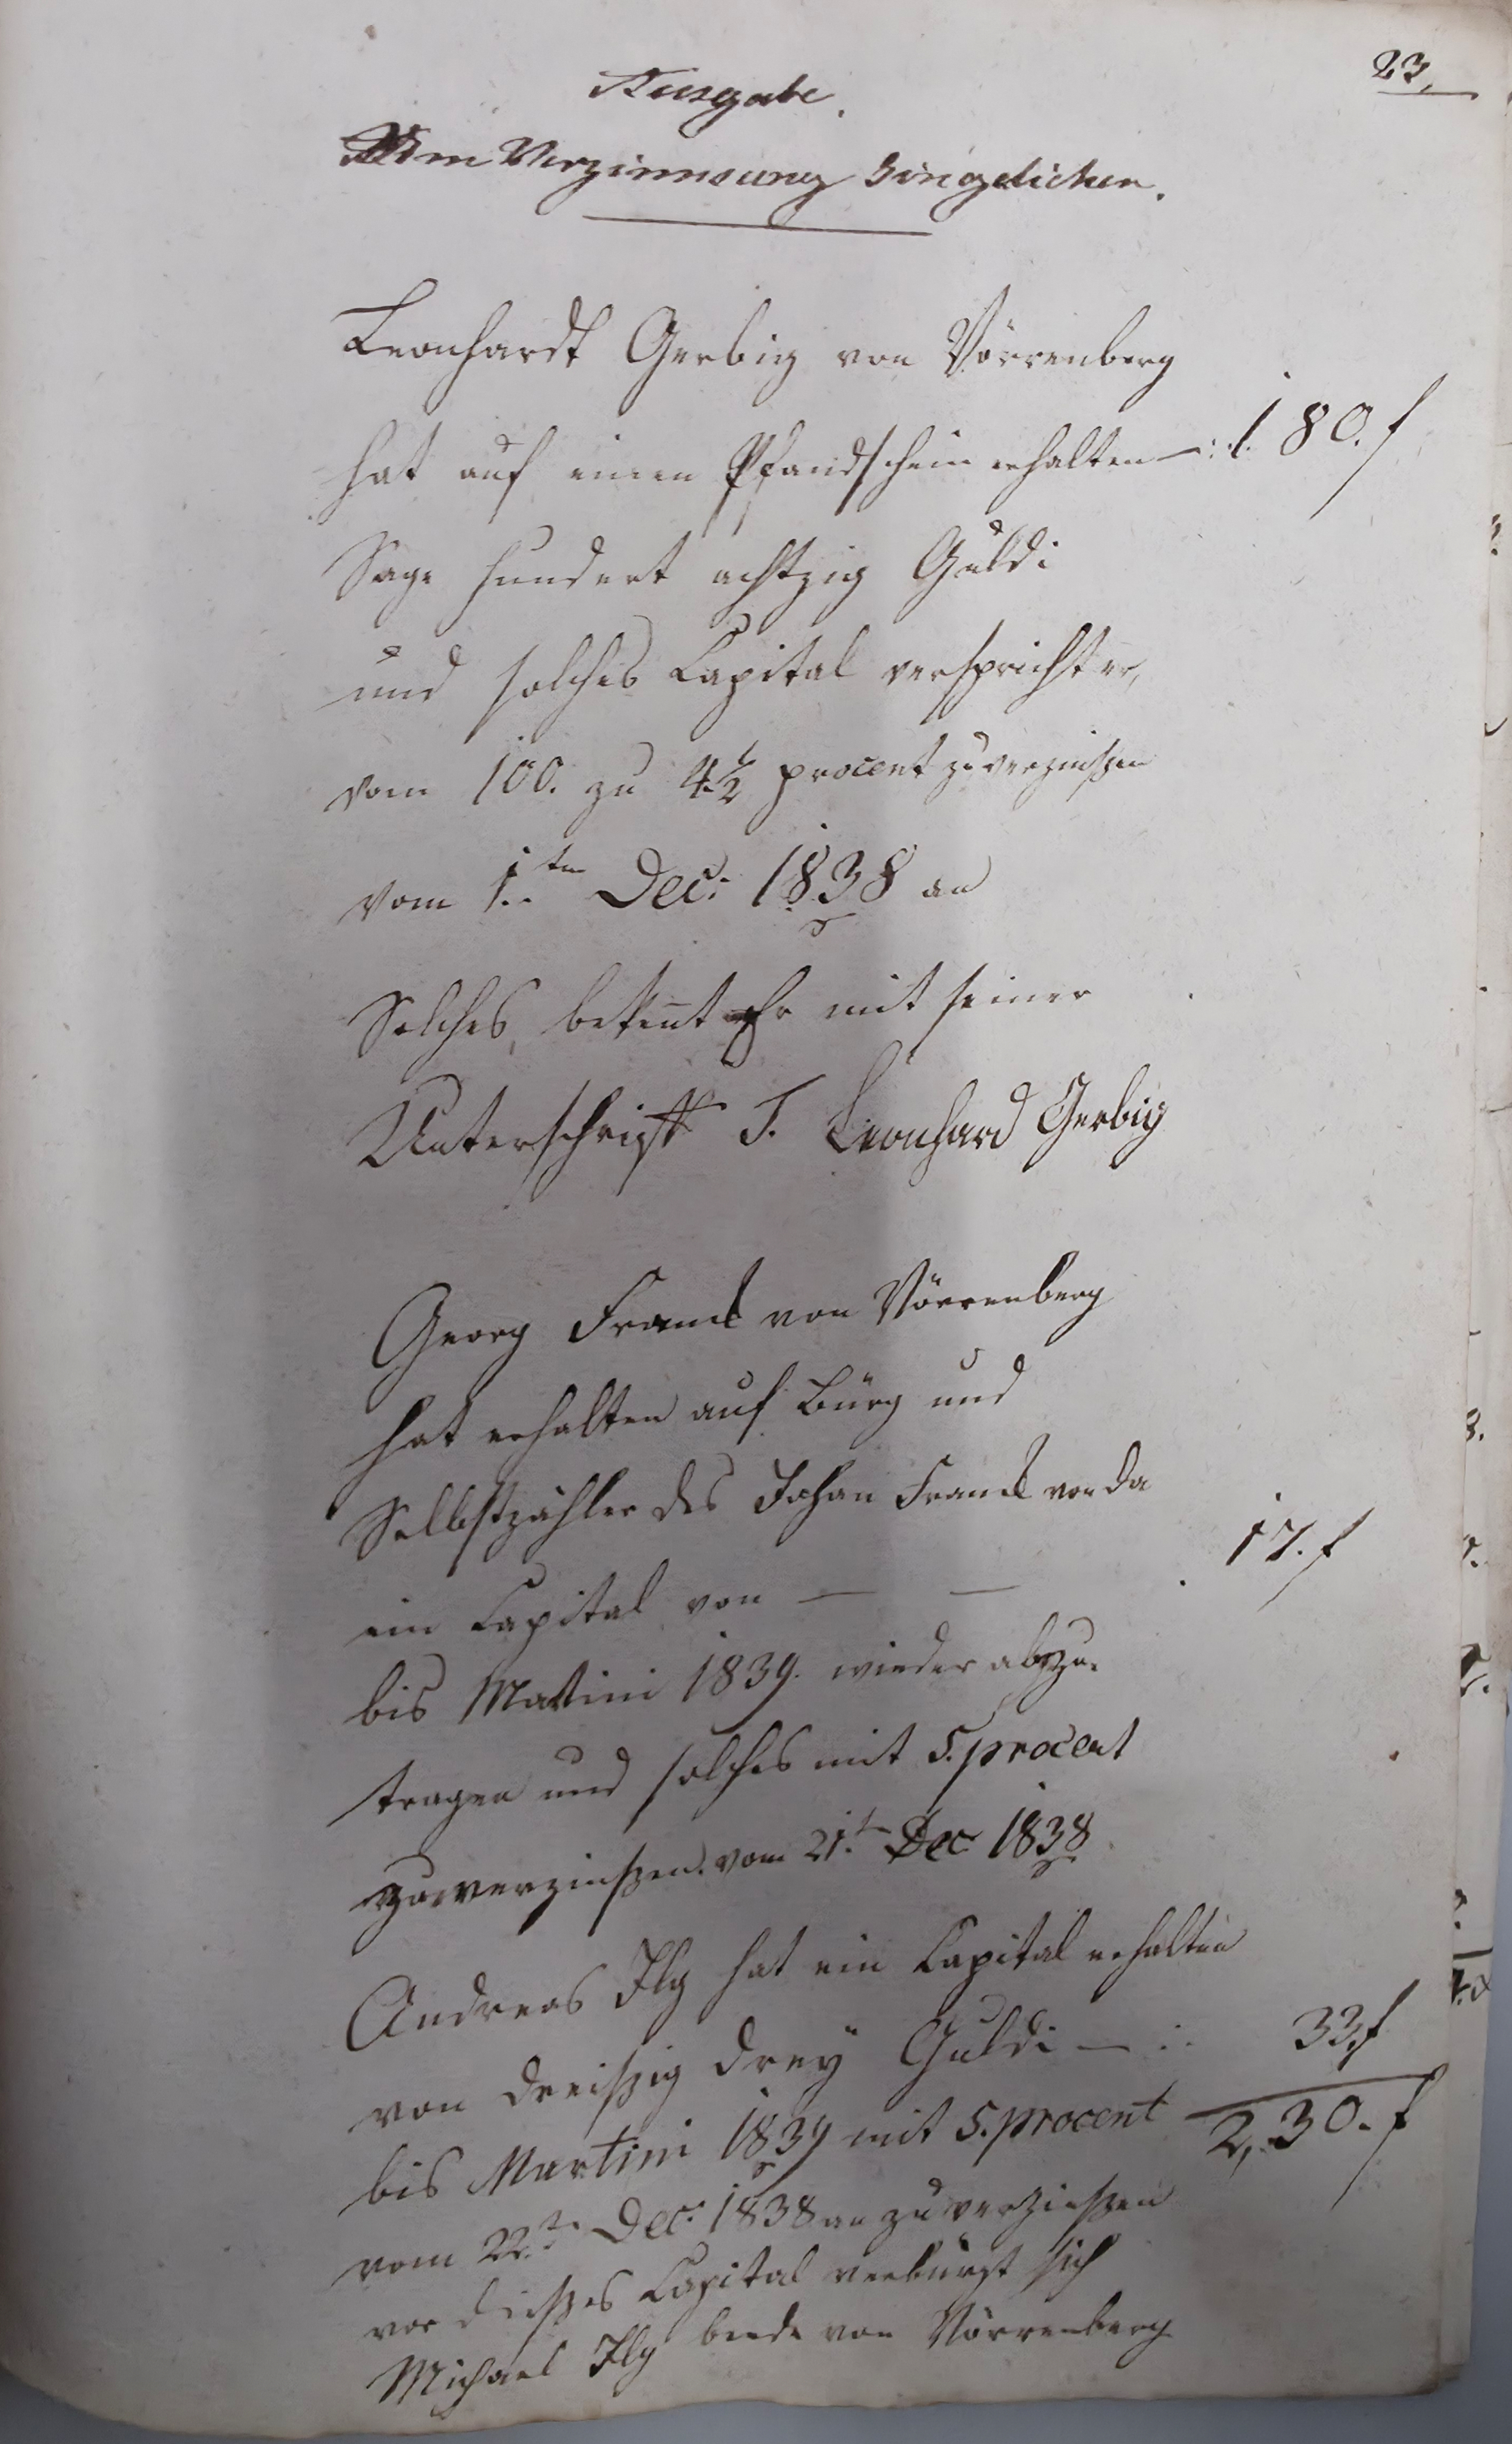 23,
Ausgabe.
Um Verzinnsung hingelichen.
Leonhardt Gerbig von Dörrenberg
hat auf einen Pfandschein erhalten —:1. 180. f
Sage hundert achtzig Guldi
und solches Capital verspricht er,
vom 100. zu 4½ procent zu verzinßen
vom 1.ten Dec: 1838 an
Solches, bekent Er mit seiner
Unterschrift T. Leonhard Gerbig
Georg Franck von Dörrenberg
hat erhalten auf Bürg und
Selbstzahler des Johan Franck von da
ein Capital von — — 17. f
bis Matini 1839. wieder abzu-
tragen und solches mit 5. procent
zu verzinßen. vom 21.t Dec 1838
Andreas Ilg hat ein Capital erhalten
von dreißig drey Guldi — : 33 f
bis Martini 1839 mit 5. procent 2,30. f
vom 22.t Dec: 1838 an zu verzinßen
vor dießes Capital verbürgt sich
Michael Ilg beede von Dörrenberg